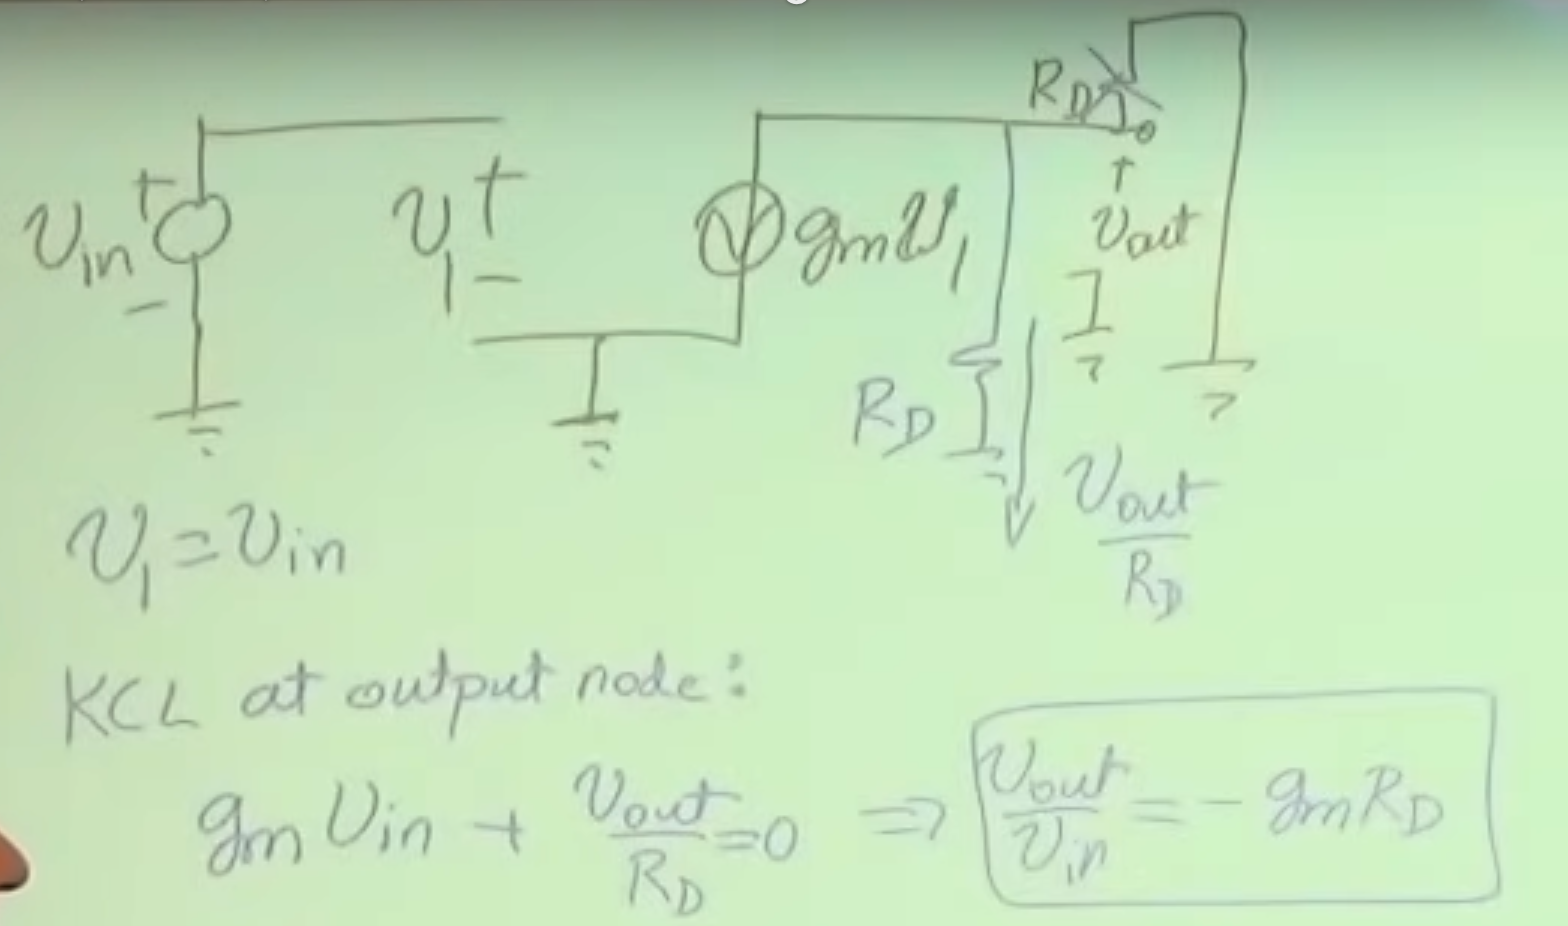 R_D
+
v_in
-
v_1
+
-
g_m v_1
+
v_out
-
R_D
v_out / R_D
v_1 = v_in
KCL at output node:
g_m v_in + v_out / R_D = 0 ⇒ v_out / v_in = - g_m R_D